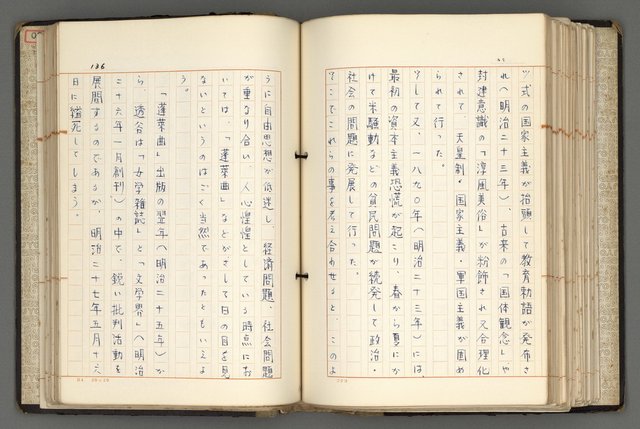 ツ式の国家主義が抬頭して教育勅語が発布さ
れ(明治二十三年)、古来の「国体観念」や
封建意識の「淳風美俗」が粉飾され又合理化
されて、天皇制・国家主義・軍国主義が固め
られて行った。
少して又、一八九〇年(明治二十三年)には、
最初の資本主義恐慌が起こり、春から夏にか
けて米騒動などの貧民問題が続発して政治・
社会の問題に発展して行った。
そこでこれらの事を考え合わせると、このよ
136
うに自由思想が低迷し、経済問題、社会問題
が重なり合い、人心惶惶としている時点にお
いては、「蓬萊曲」などがさして日の目を見
ないというのはごく当然であったともいえよ
う。
「蓬萊曲」出版の翌年(明治二十五年)か
ら、透谷は「女学雑誌」と「文学界」(明治
二十六年一月創刊)の中で、鋭い批判活動を
展開するのであるが、明治二十七年五月十六
日に縊死してしまう。